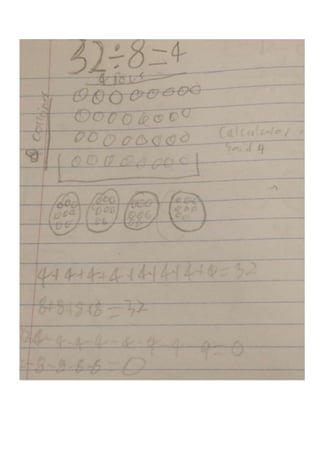 32÷8=4
4 rows
8 columns
Calculator
Said 4
4+4+4+4+4+4+4+4=32
8+8+8+8=32
-4-4-4-4-4-4-4=0
-8-8-8=0